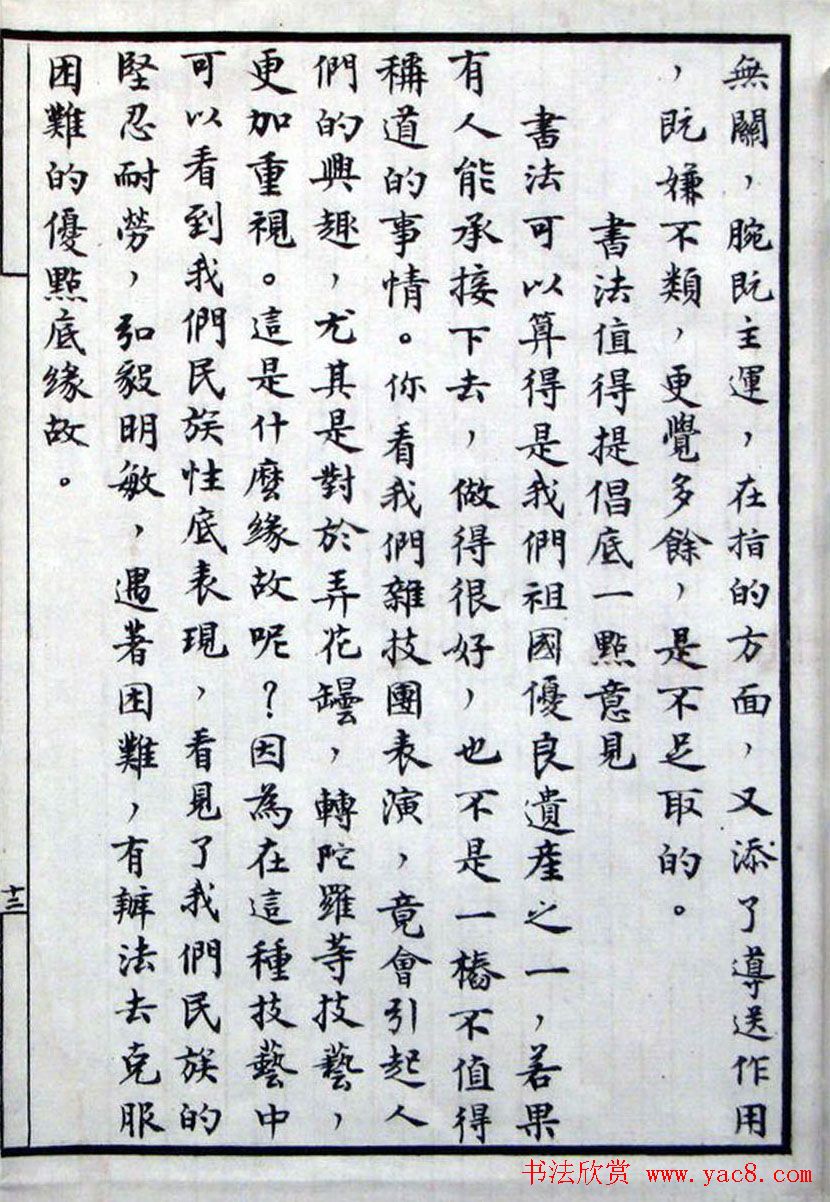 無關，腕既主運，在指的方面，又添了導送作用
，既嫌不類，更覺多餘，是不足取的。
書法值得提倡底一點意見
書法可以算得是我們祖國優良遺產之一，若果
有人能承接下去，做得很好，也不是一樁不值得
稱道的事情。你看我們雜技團表演，竟會引起人
們的興趣，尤其是對於弄花罎，轉陀羅等技藝，
更加重視。這是什麼緣故呢？因為在這種技藝中
可以看到我們民族性底表現，看見了我們民族的
堅忍耐勞，弘毅明敏，遇著困難，有辦法去克服
困難的優點底緣故。
十三
书法欣赏 www.yac8.com